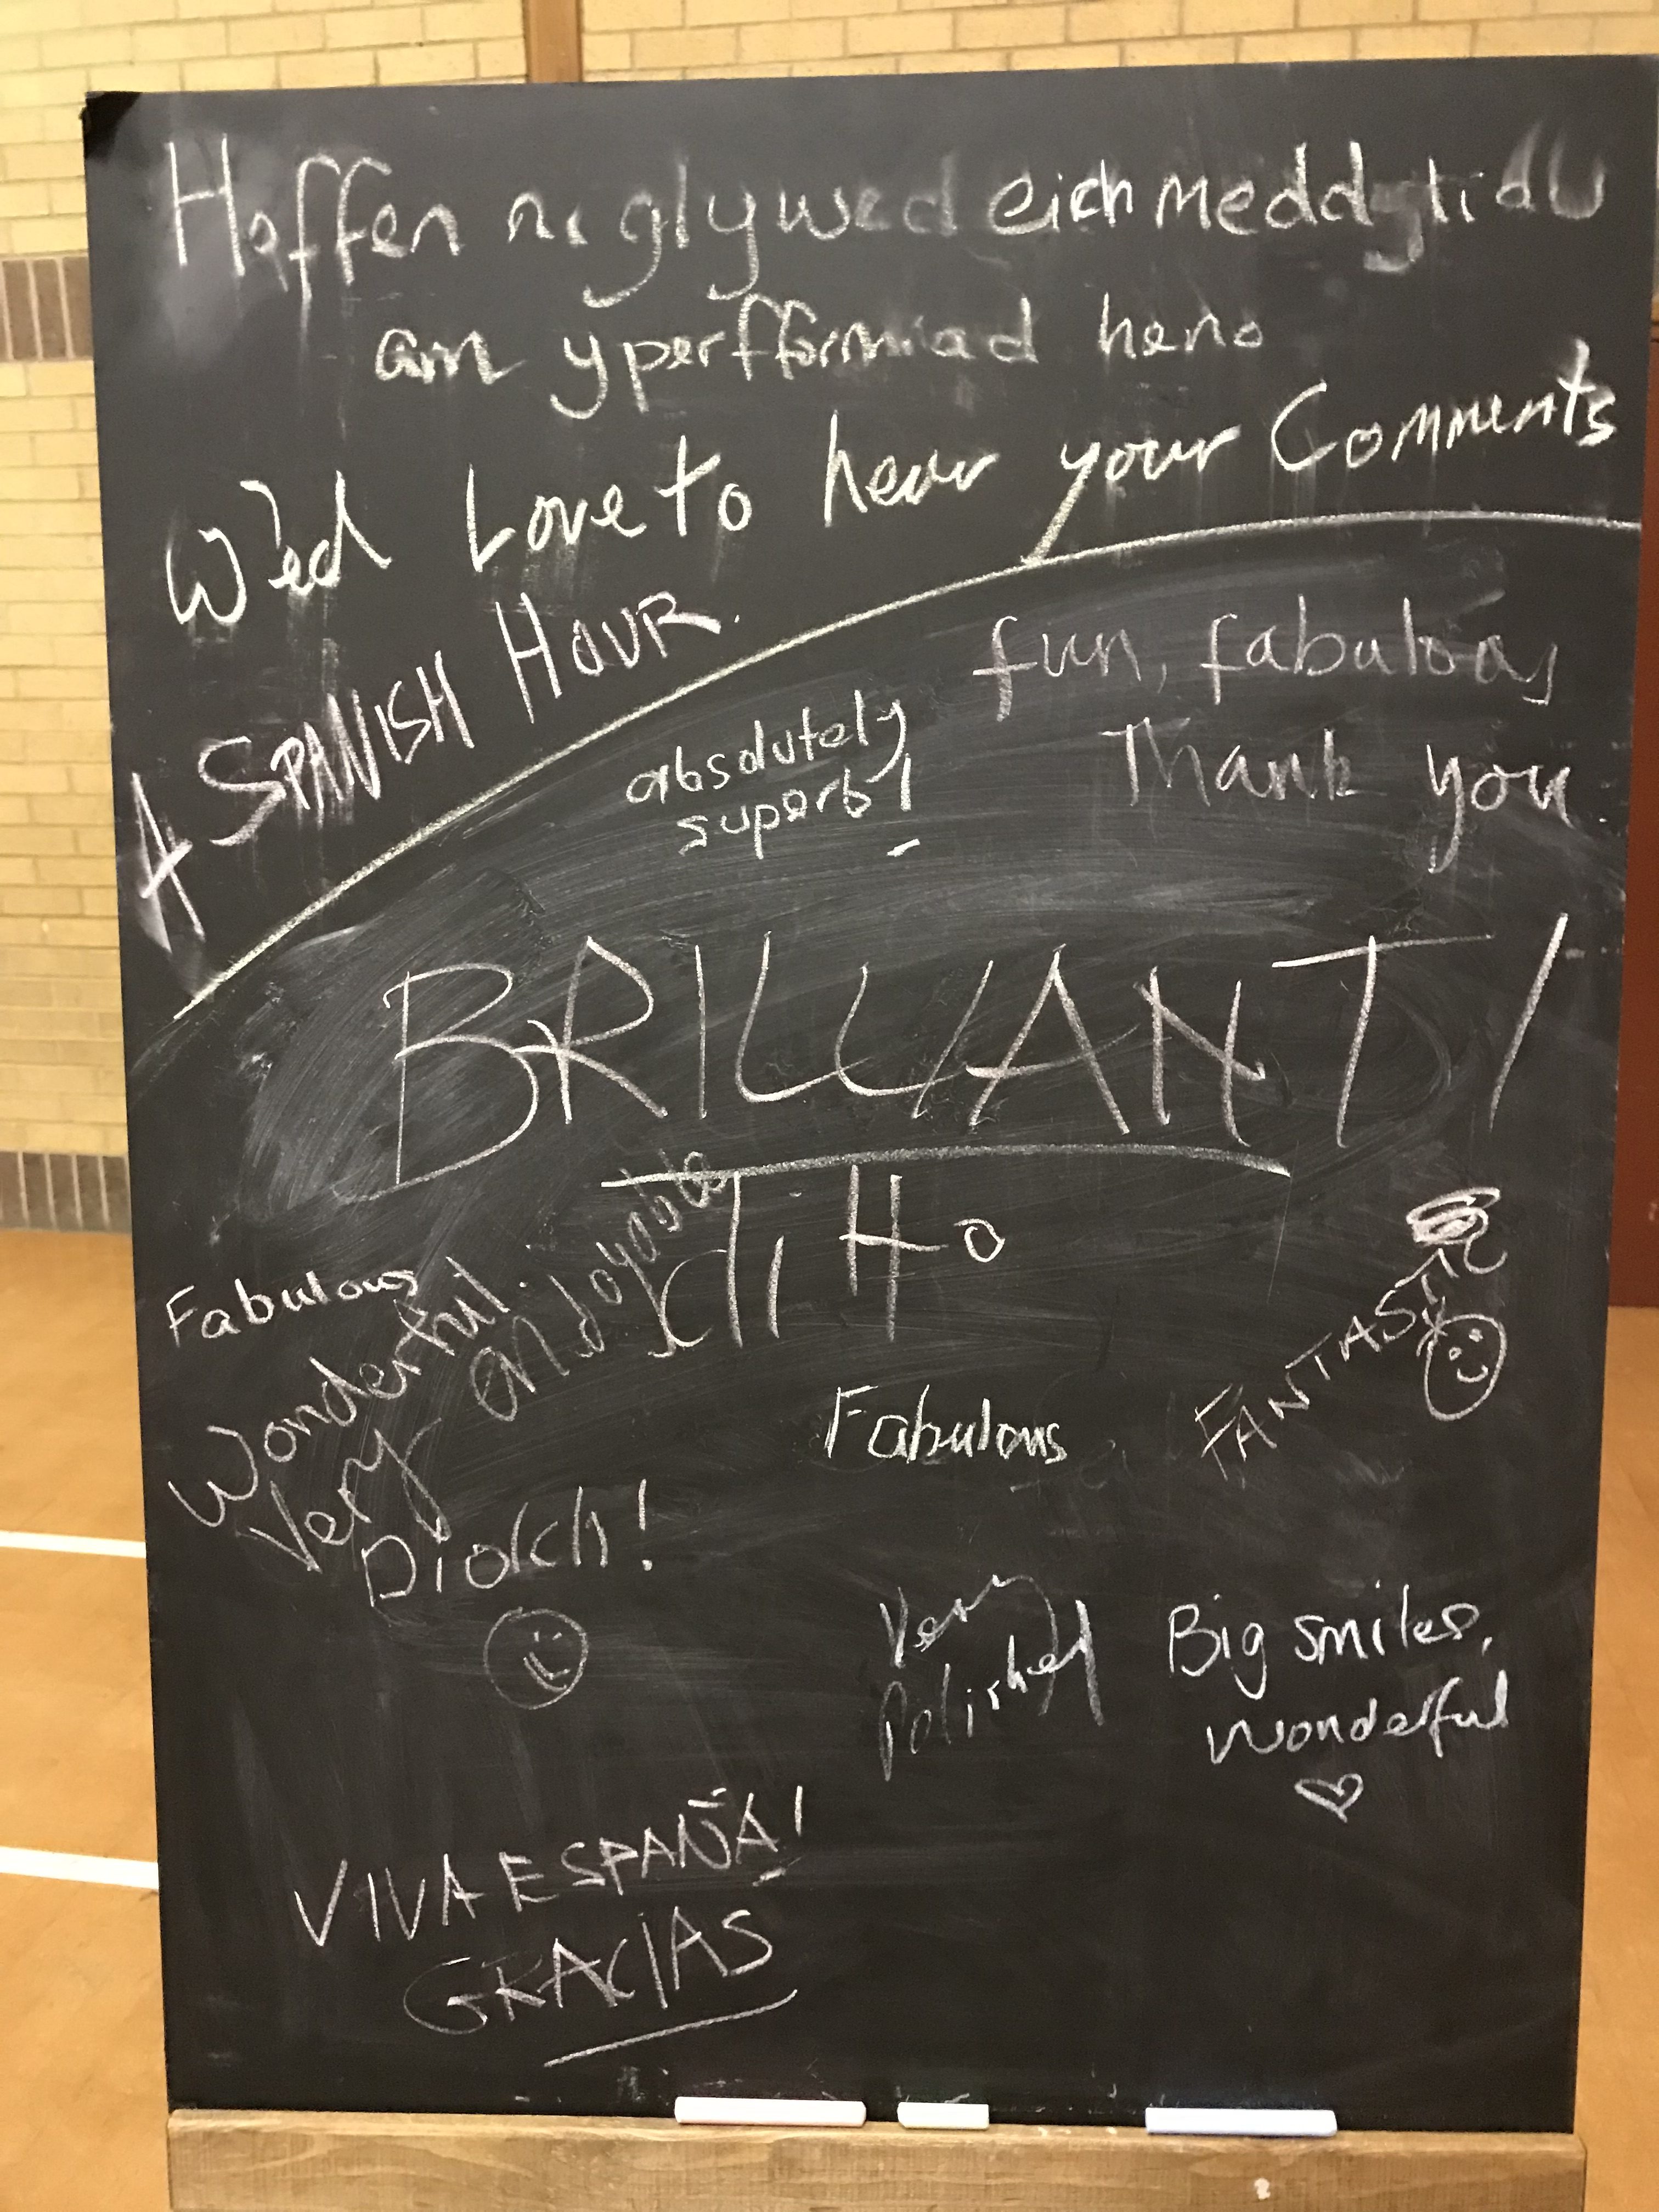 Hoffen ni glywed eich meddyliau
am y perfformiad heno
We'd Love to hear your Comments
A SPANISH HOUR.
fun, fabulous
Thank you
absolutely
superb!
BRILLIANT!
Fabulous
Wonderful.
Very enjoyable
Diolch!
Fabulous
FANTASTIC
Very
Polished
Big smiles,
wonderful
VIVA ESPAÑA!
GRACIAS